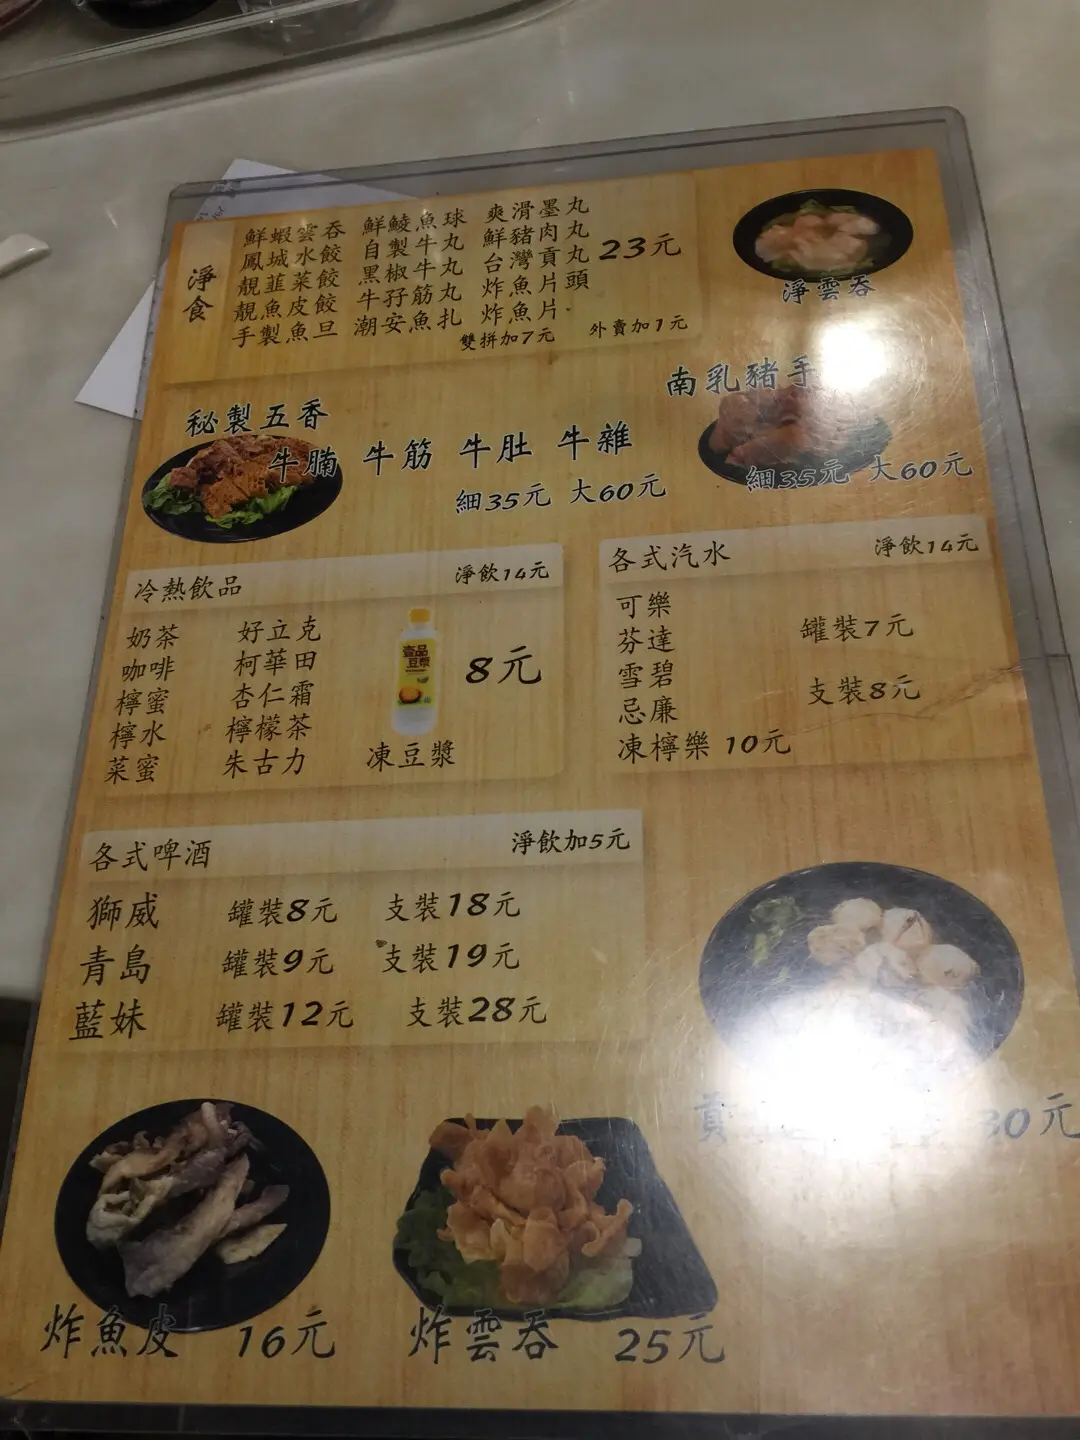 淨食
鮮蝦雲吞 鮮鯪魚球 爽滑墨丸
鳳城水餃 自製牛丸 鮮豬肉丸
靚韮菜餃 黑椒牛丸 台灣貢丸
靚魚皮餃 牛孖筋丸 炸魚片頭
手製魚旦 潮安魚扎 炸魚片
23元
雙拼加7元 外賣加1元
淨雲吞
秘製五香
牛腩 牛筋 牛肚 牛雜
細35元 大60元
南乳豬手
細35元 大60元
冷熱飲品 淨飲14元
奶茶 好立克
咖啡 柯華田
檸蜜 杏仁霜
檸水 檸檬茶
菜蜜 朱古力
壹品
豆漿
8元
凍豆漿
各式汽水 淨飲14元
可樂
芬達
雪碧
忌廉
罐裝7元
支裝8元
凍檸樂 10元
各式啤酒 淨飲加5元
獅威 罐裝8元 支裝18元
青島 罐裝9元 支裝19元
藍妹 罐裝12元 支裝28元
貢 30元
炸魚皮 16元
炸雲吞 25元